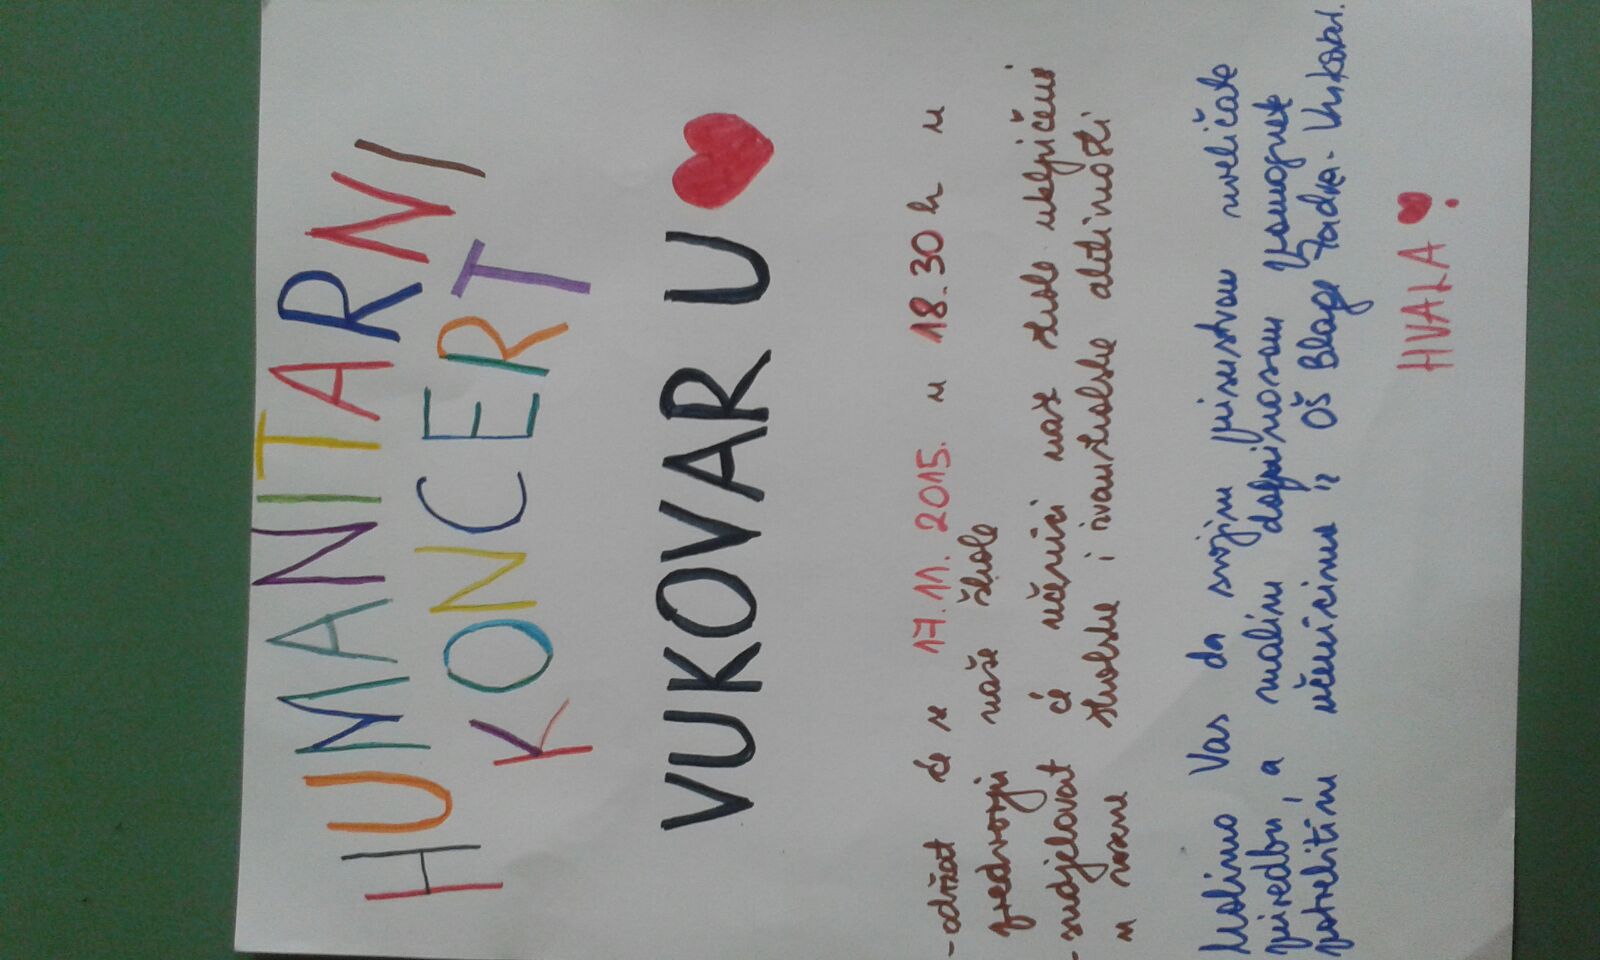 HUMANITARNI
KONCERT
VUKOVAR U
- održat će se 17.11.2015. u 18.30 h u
predvorju naše škole
- sudjelovat će učenici naše škole uključeni
u razne školske i izvanškolske aktivnosti
Molimo Vas da svojim prisustvom uveličate
priredbu, a malim doprinosom pomognete
potrebitim učenicima iz OŠ Blage Zadre - Vukovar.
HVALA!